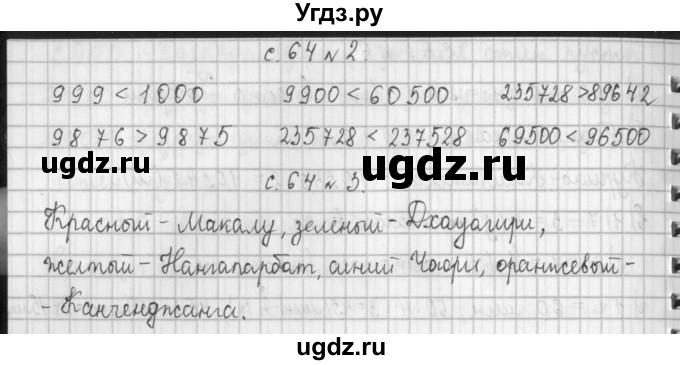 Угдз.ру
с. 64 № 2.
999 < 1000 9900 < 60500 235728 > 89642
9876 > 9875 235728 < 237528 69500 < 96500
ugdz.ru ugdz.ru ugdz.ru
с. 64 № 3.
Красный - Макалу, зелёный - Дхауагири,
желтый - Нангапарбат, синий Чогри, оранжевый -
- Канченджанга.
ugdz.ru
ugdz.ru